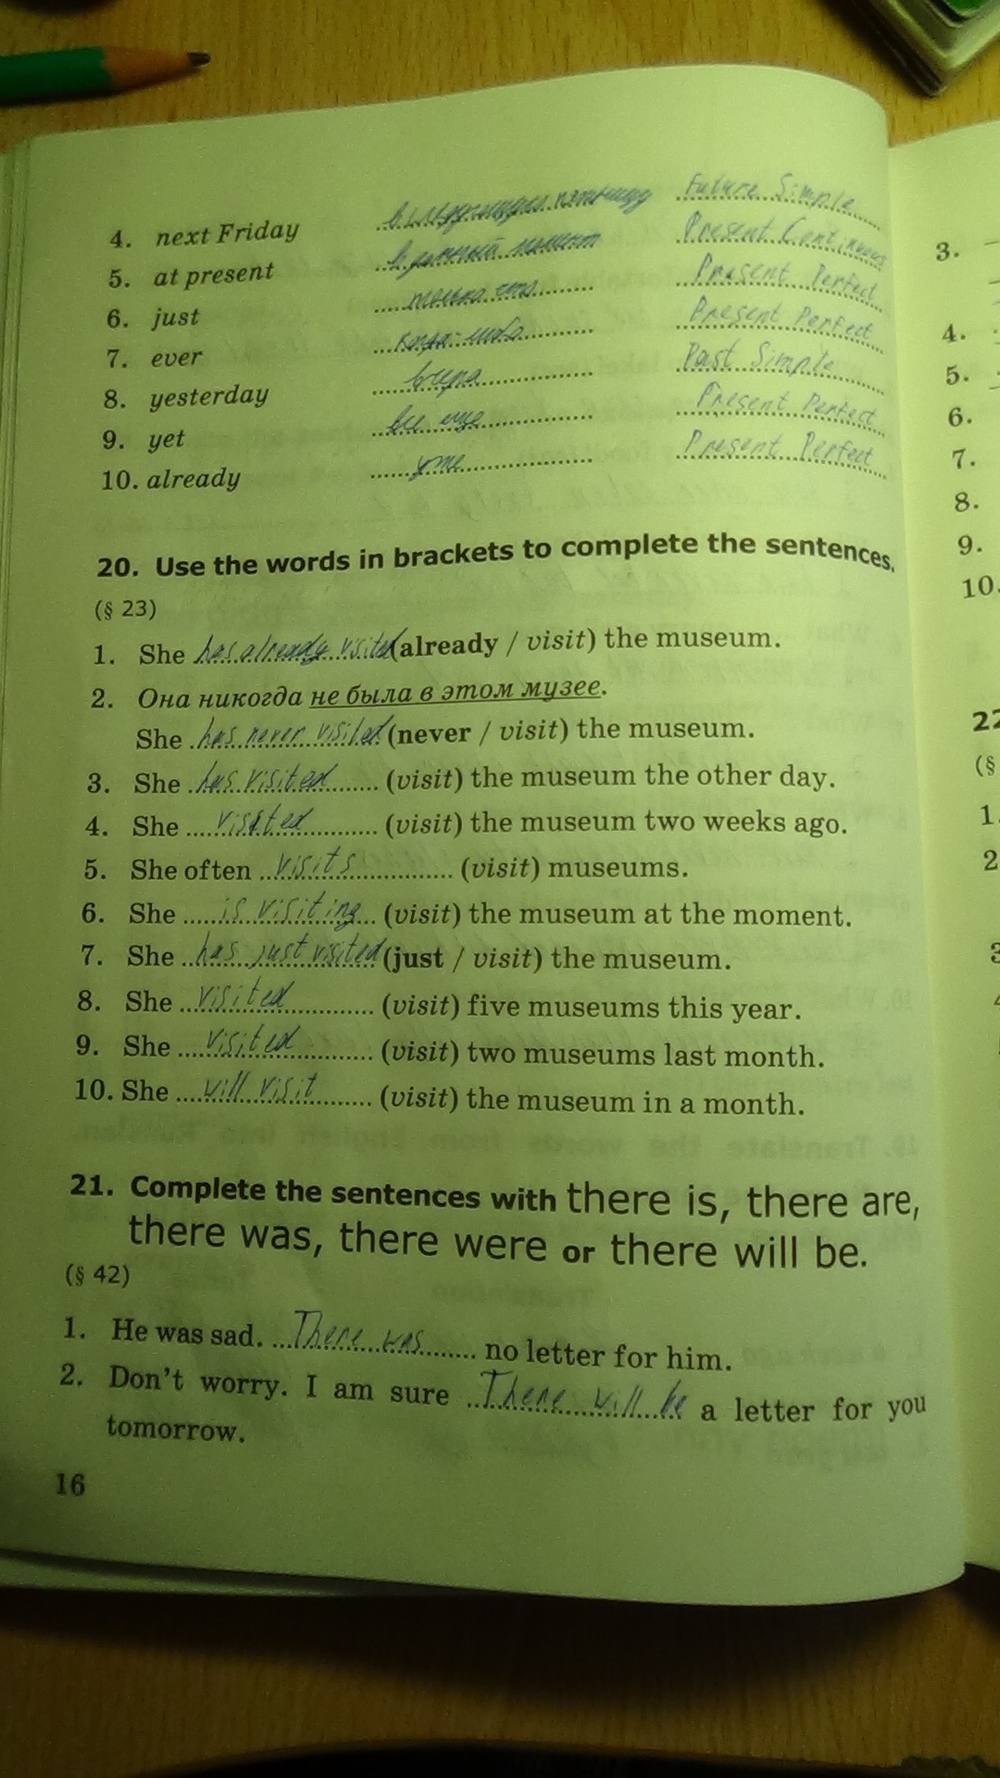 4. next Friday в следующую пятницу Future Simple
5. at present в данный момент Present Continuous
6. just только что Present Perfect
7. ever когда-либо Present Perfect
8. yesterday вчера Past Simple
9. yet все еще Present Perfect
10. already уже Present Perfect
20. Use the words in brackets to complete the sentences.
(§ 23)
1. She has already visited (already / visit) the museum.
2. Она никогда не была в этом музее.
She has never visited (never / visit) the museum.
3. She has visited (visit) the museum the other day.
4. She visited (visit) the museum two weeks ago.
5. She often visits (visit) museums.
6. She is visiting (visit) the museum at the moment.
7. She has just visited (just / visit) the museum.
8. She visited (visit) five museums this year.
9. She visited (visit) two museums last month.
10. She will visit (visit) the museum in a month.
21. Complete the sentences with there is, there are,
there was, there were or there will be.
(§ 42)
1. He was sad. There was no letter for him.
2. Don't worry. I am sure There will be a letter for you
tomorrow.
16
3.
4.
5.
6.
7.
8.
9.
10.
22
(§
1.
2
3